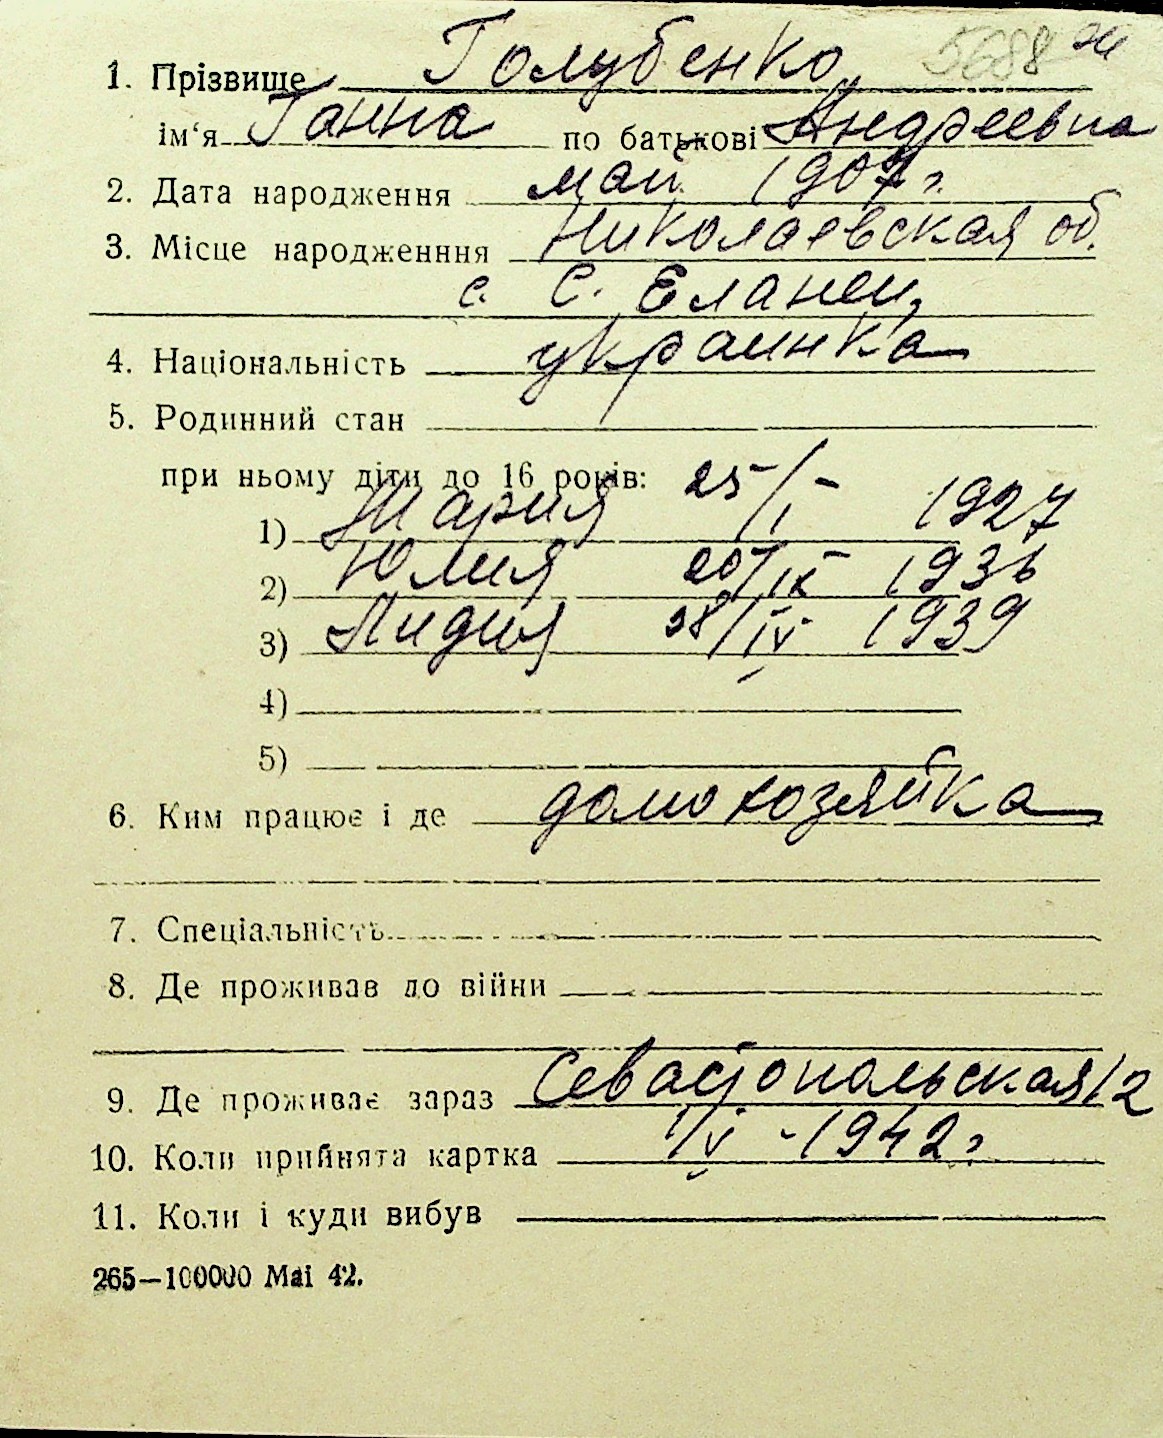 5688 ж
1. Прізвище Голубенко
ім‘я Ганна по батькові Андреевна
2. Дата народження май 1907 г.
3. Місце народженння Николаевская об.
с. С. Еланец,
4. Національність украинка
5. Родинний стан
при ньому діти до 16 років:
1) Мария 25/I - 1927
2) Юлия 20/IX - 1936
3) Лидия 28/IV 1939
4)
5)
6. Ким працює і де домохозяйка
7. Спеціальність
8. Де проживав до війни
9. Де проживає зараз Севастопольская 12
10. Коли прийнята картка 1/V - 1942 г
11. Коли і куди вибув
265—100000 Mai 42.